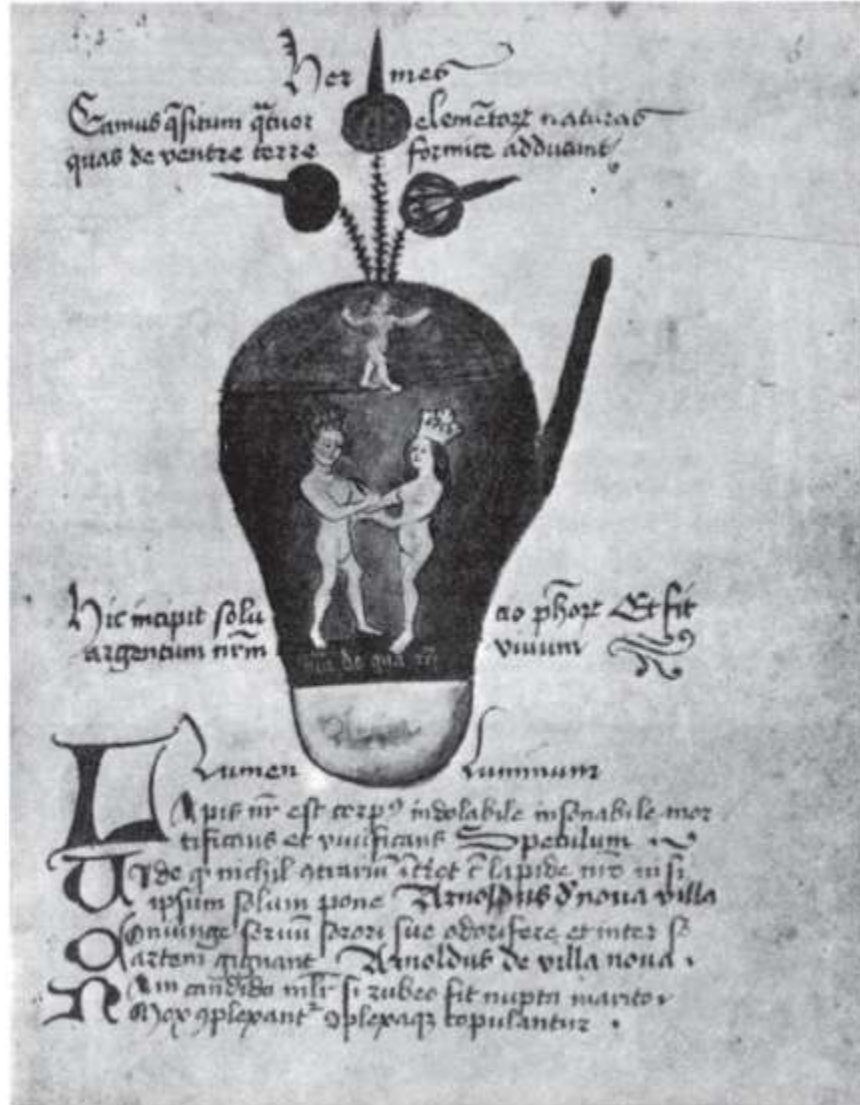 Hermes
Eamus q̄situm q̄tuor elemētoꝝ naturas
quas de ventre terre formice adducunt
Hic incipit solutio ph̄oꝝ Et fit
argentum nr̄m vivum
de qua
Lumen Luminum
Lapis nr̄ est corpꝰ indolabile insonabile mor
tificans et vivificans Speculum
Vide nichil ꝯtrariū lapide nr̄o nisi
ipsum solum pone Arnoldus d' nova villa
Coniunge servū sorori sue odorifere et inter se
artem gignant Arnoldus de villa nova.
Nam candido si rubeo fit nupta marito
Mox ꝯplexant ꝯplexaqꝫ copulantur.